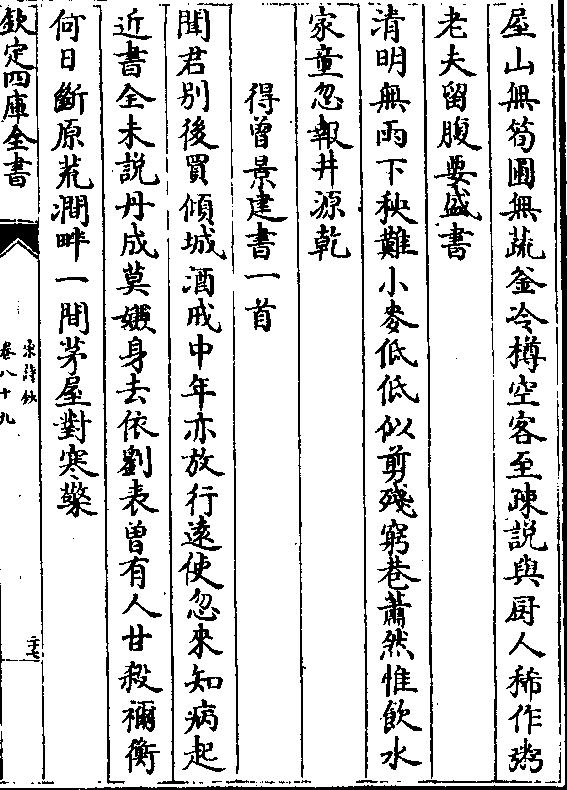 屋山無筍圃無蔬釜冷樽空客至疎説與厨人稀作粥
老夫留腹要盛書
清明無雨下秧難小麥低低似剪殘窮巷蕭然惟飲水
家童忽報井源乾
得曾景建書一首
聞君别後買傾城酒戒中年亦放行遠使忽來知病起
近書全未説丹成莫嫌身去依劉表曽有人甘殺禰衡
何日斷原荒澗畔一間茅屋對寒檠
欽定四庫全書
宋詩鈔
卷八十九